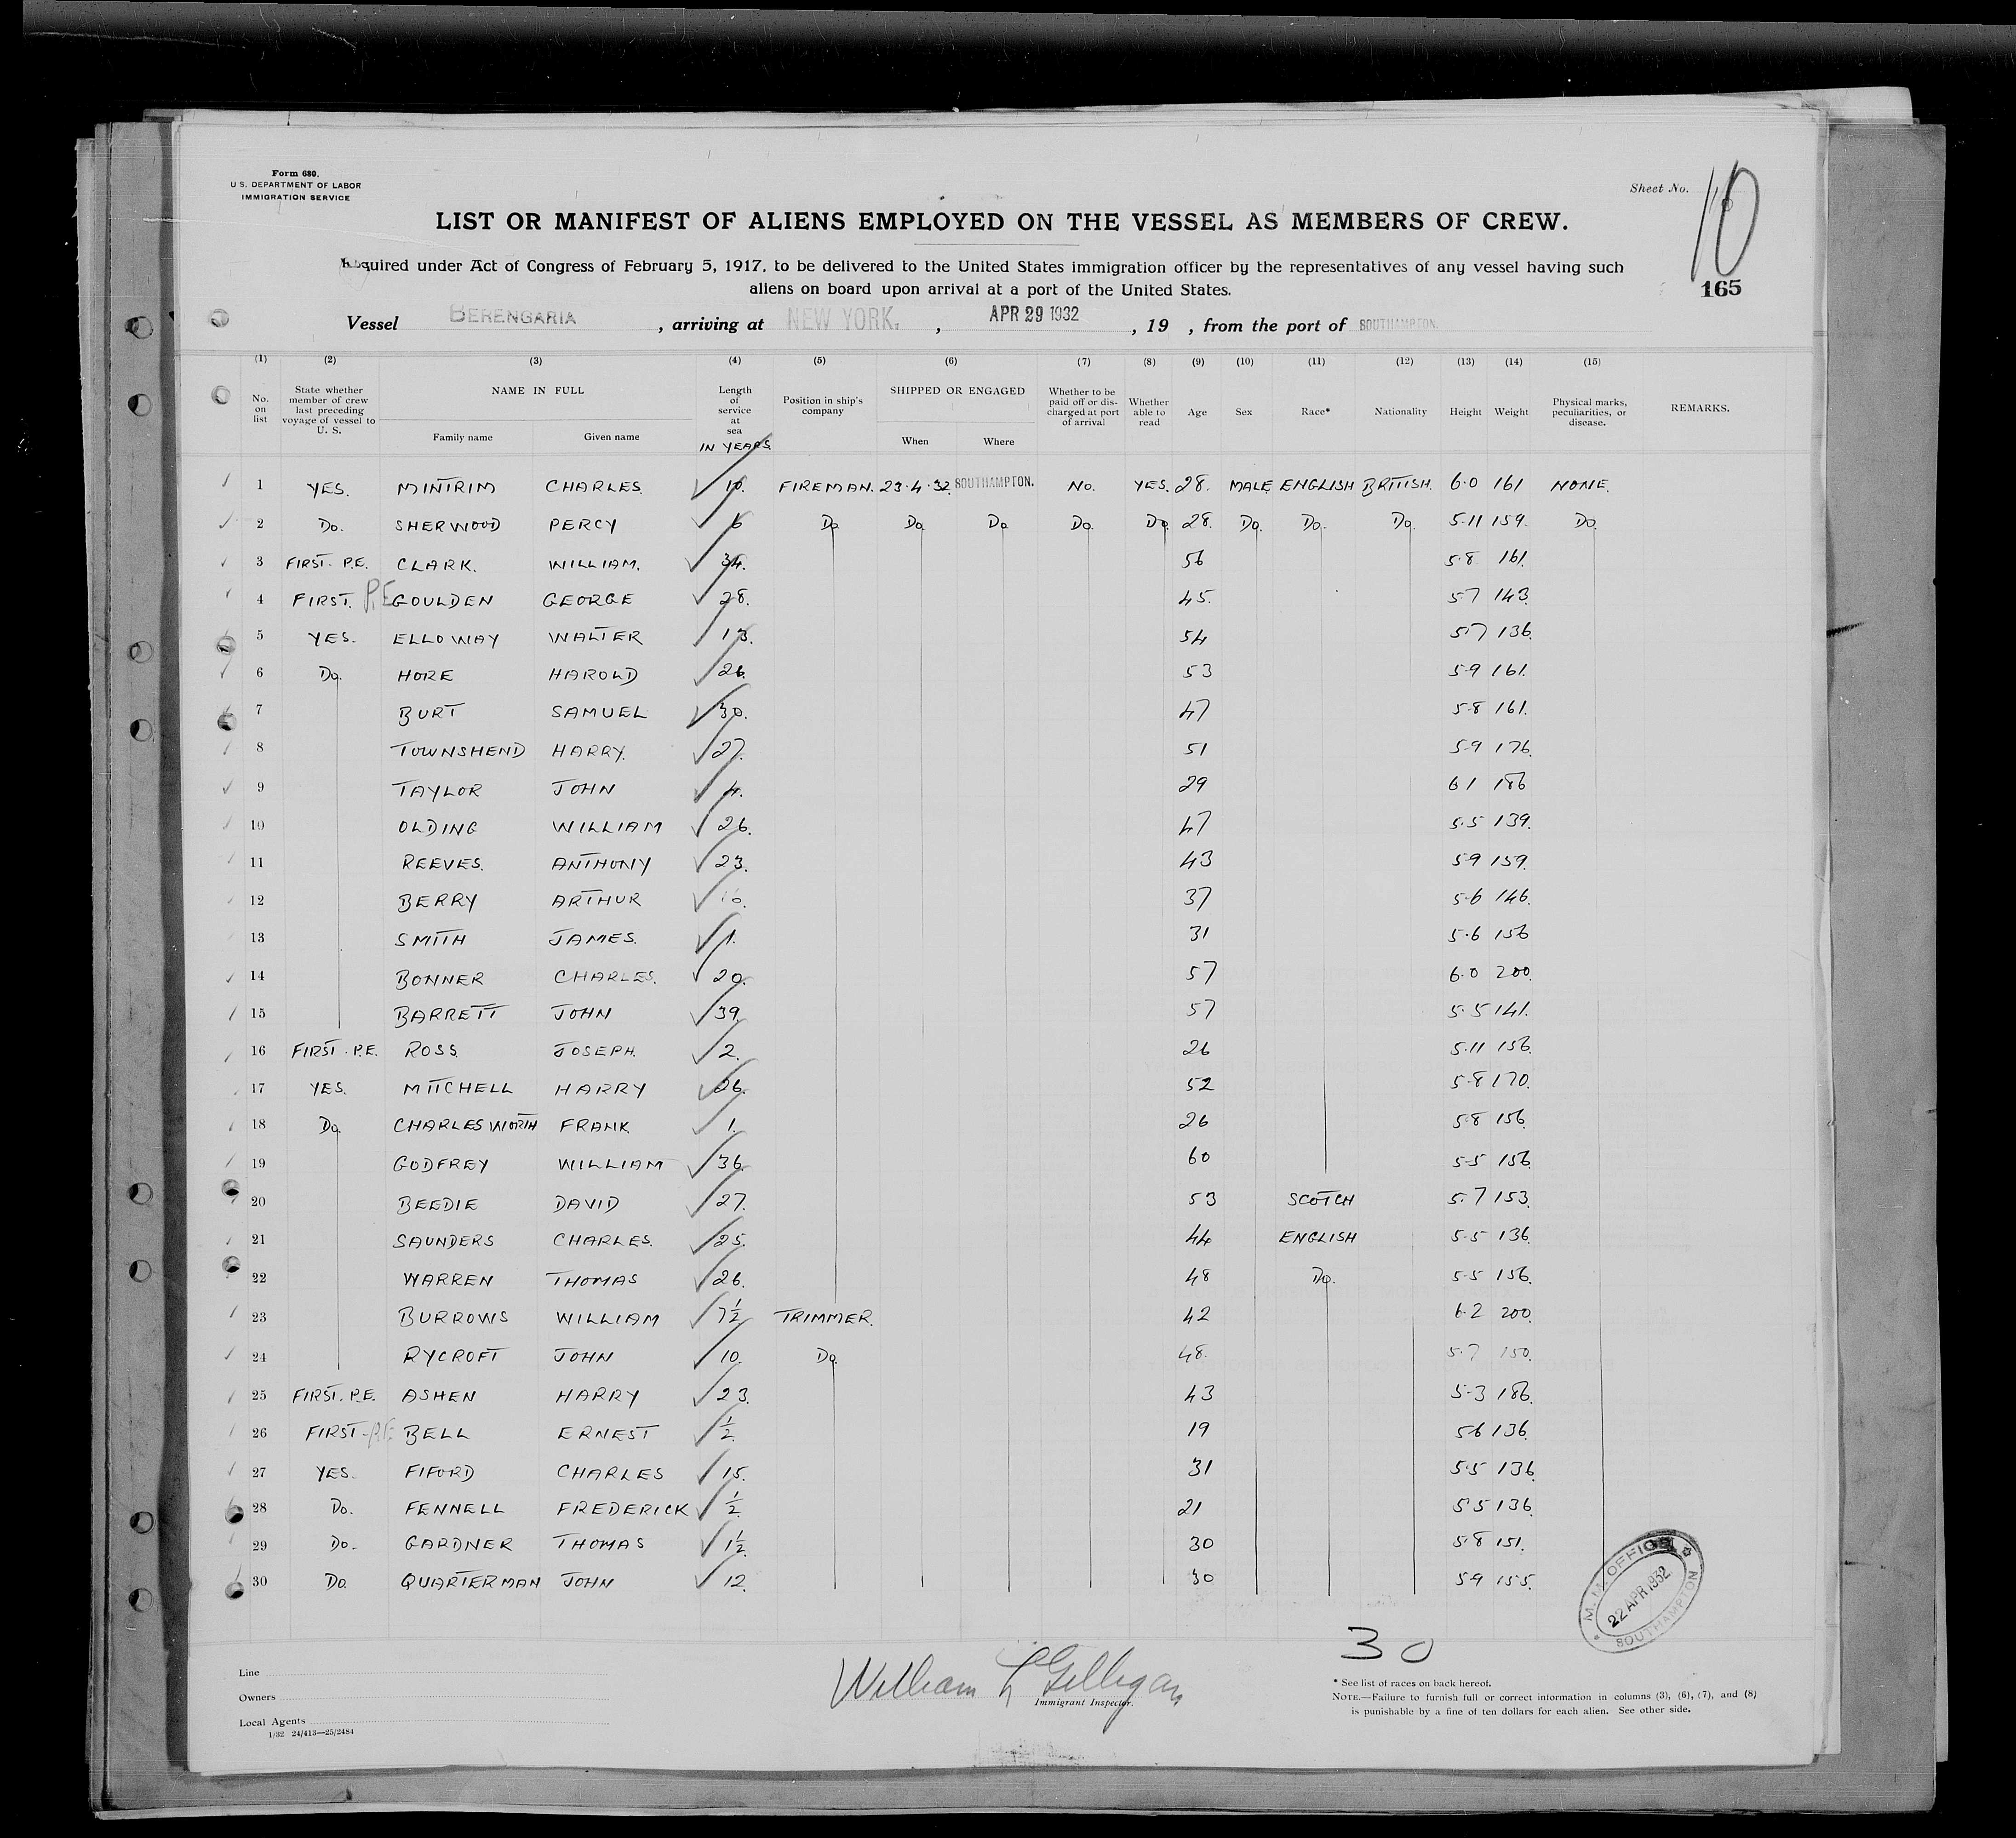 Form 680.
U.S. DEPARTMENT OF LABOR
IMMIGRATION SERVICE
Sheet No.
LIST OR MANIFEST OF ALIENS EMPLOYED ON THE VESSEL AS MEMBERS OF CREW.
Required under Act of Congress of February 5, 1917, to be delivered to the United States immigration officer by the representatives of any vessel having such
aliens on board upon arrival at a port of the United States.
165
Vessel BERENGARIA, arriving at NEW YORK., APR 29 1932, 19 , from the port of SOUTHAMPTON.
(1) (2) (3) (4) (5) (6) (7) (8) (9) (10) (11) (12) (13) (14) (15)
No. on list State whether member of crew last preceding voyage of vessel to U. S. NAME IN FULL Family name Given name Length of service at sea IN YEARS Position in ship's company SHIPPED OR ENGAGED When Where Whether to be paid off or discharged at port of arrival Whether able to read Age Sex Race* Nationality Height Weight Physical marks, peculiarities, or disease. REMARKS.
1 YES. MINTRIM CHARLES. 10. FIREMAN. 23.4.32. SOUTHAMPTON. NO. YES. 28. MALE ENGLISH BRITISH. 6.0 161 NONE.
2 Do. SHERWOOD PERCY 6 Do Do. Do Do. Do. 28. Do. Do. Do. 5.11 159. Do.
3 FIRST. P.E. CLARK. WILLIAM. 34. 56 5.8 161.
4 FIRST. P.E GOULDEN GEORGE 28. 45. 5.7 143.
5 YES. ELLOWAY WALTER 13. 54 5.7 136.
6 Do. HORE HAROLD 26. 53 5.9 161.
7 BURT SAMUEL 30. 47 5.8 161.
8 TOWNSHEND HARRY. 27. 51 5.9 176.
9 TAYLOR JOHN 4. 29 6 1 186
10 OLDING WILLIAM 26. 47 5.5 139.
11 REEVES. ANTHONY 23. 43 5 9 159.
12 BERRY ARTHUR 37 5.6 146.
13 SMITH JAMES. 1. 31 5.6 156
14 BONNER CHARLES. 20. 57 6.0 200.
15 BARRETT JOHN 39. 57 5.5 141.
16 FIRST. P.E. ROSS. JOSEPH. 2. 26 5.11 156.
17 YES. MITCHELL HARRY 26. 52 5.8 170.
18 Do. CHARLESWORTH FRANK 1. 26 5.8 156.
19 GODFREY WILLIAM 36. 60 5.5 156.
20 BEEDIE DAVID 27. 53 SCOTCH 5.7 153.
21 SAUNDERS CHARLES. 25. 44 ENGLISH 5.5 136.
22 WARREN THOMAS 26. 48 Do. 5.5 156.
23 BURROWS WILLIAM 7½ TRIMMER. 42 6.2 200.
24 RYCROFT JOHN 10. Do. 48. 5.7 150.
25 FIRST. P.E. ASHEN HARRY 23. 43 5.3 186.
26 FIRST - P.E BELL ERNEST ½. 19 5 6 136.
27 YES. FIFORD CHARLES 15. 31 5.5 136.
28 Do. FENNELL FREDERICK ½. 21 5 5 136.
29 Do. GARDNER THOMAS 1½. 30 5.8 151.
30 Do. QUARTERMAN JOHN 12. 30 5.9 155.
M.M. OFFICE
22 APR 1932
SOUTHAMPTON
30
Line
Owners
Local Agents
1/32 24/413—25/2484
William L Gilligan
Immigrant Inspector.
* See list of races on back hereof.
NOTE.—Failure to furnish full or correct information in columns (3), (6), (7), and (8)
is punishable by a fine of ten dollars for each alien. See other side.